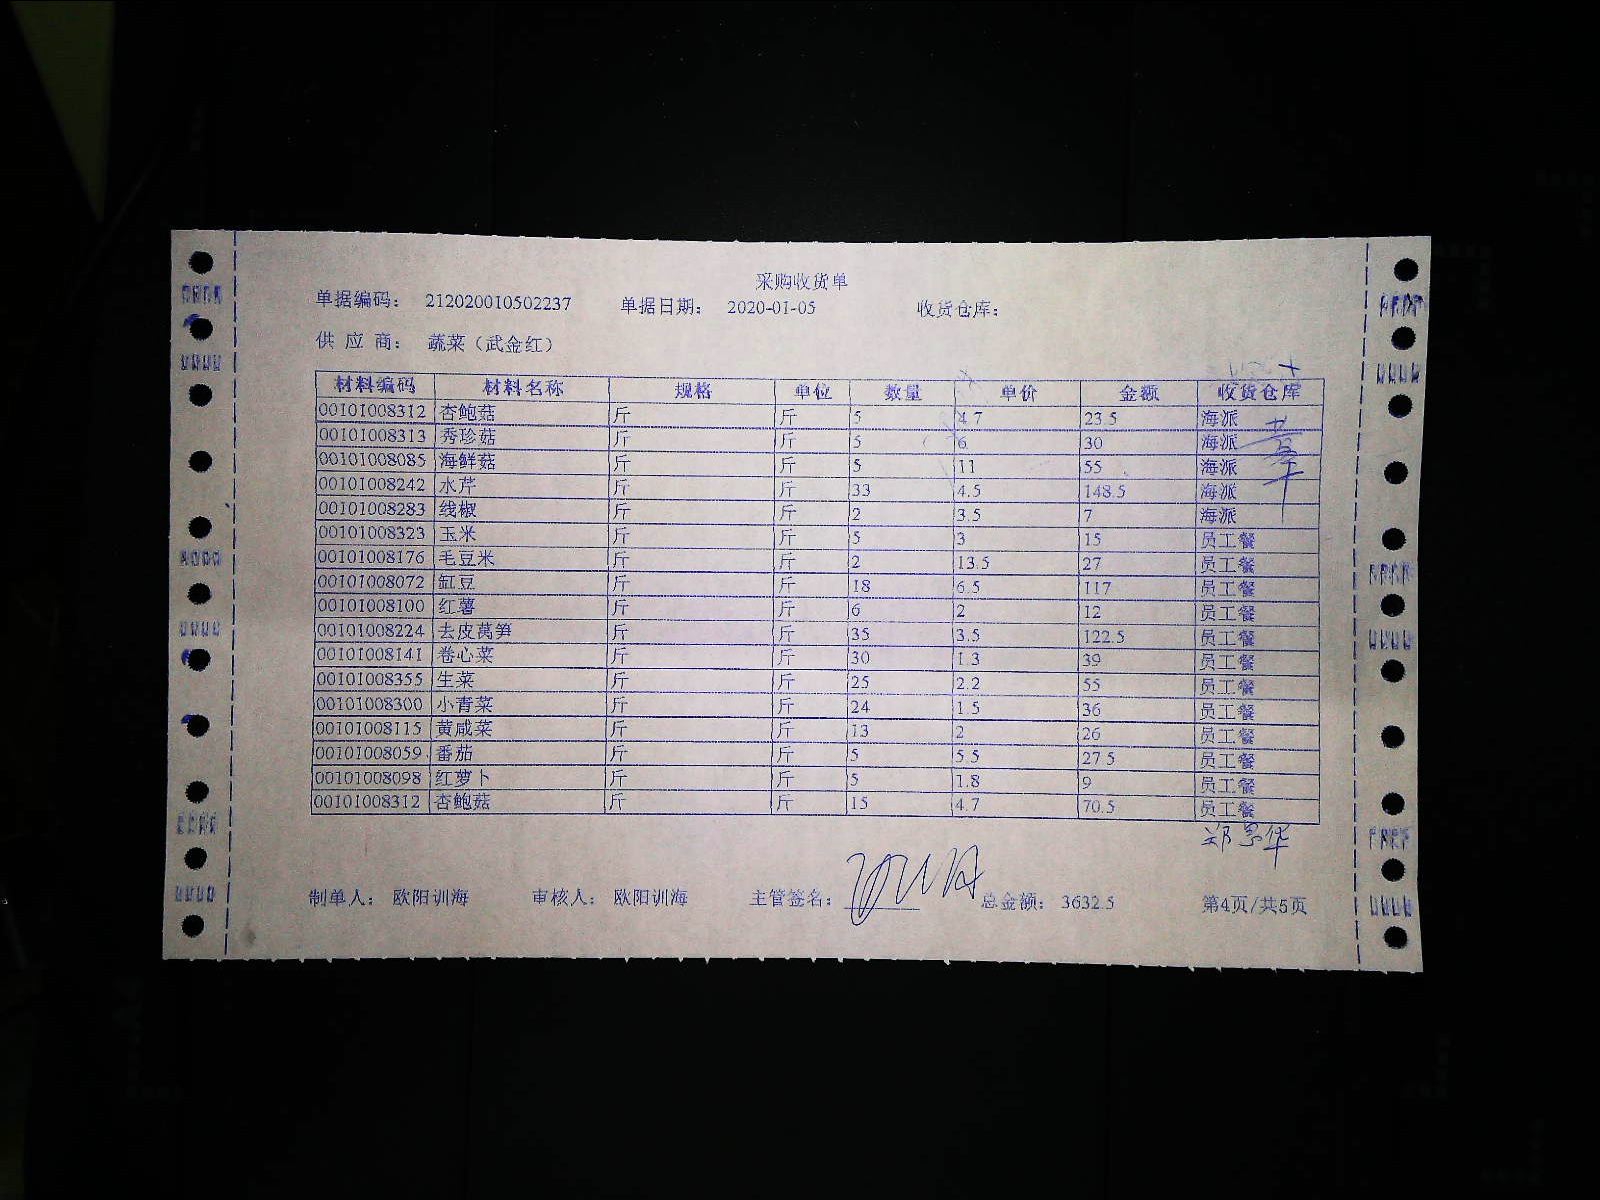 采购收货单
单据编码： 212020010502237 单据日期： 2020-01-05 收货仓库：
供 应 商： 蔬菜（武金红）
材料编码 材料名称 规格 单位 数量 单价 金额 收货仓库
00101008312 杏鲍菇 斤 斤 5 4.7 23.5 海派
00101008313 秀珍菇 斤 斤 5 6 30 海派
00101008085 海鲜菇 斤 斤 5 11 55 海派
00101008242 水芹 斤 斤 33 4.5 148.5 海派
00101008283 线椒 斤 斤 2 3.5 7 海派
00101008323 玉米 斤 斤 5 3 15 员工餐
00101008176 毛豆米 斤 斤 2 13.5 27 员工餐
00101008072 缸豆 斤 斤 18 6.5 117 员工餐
00101008100 红薯 斤 斤 6 2 12 员工餐
00101008224 去皮莴笋 斤 斤 35 3.5 122.5 员工餐
00101008141 卷心菜 斤 斤 30 1.3 39 员工餐
00101008355 生菜 斤 斤 25 2.2 55 员工餐
00101008300 小青菜 斤 斤 24 1.5 36 员工餐
00101008115 黄咸菜 斤 斤 13 2 26 员工餐
00101008059 番茄 斤 斤 5 5.5 27.5 员工餐
00101008098 红萝卜 斤 斤 5 1.8 9 员工餐
00101008312 杏鲍菇 斤 斤 15 4.7 70.5 员工餐
制单人： 欧阳训海 审核人： 欧阳训海 主管签名： 总金额： 3632.5 第4页/共5页